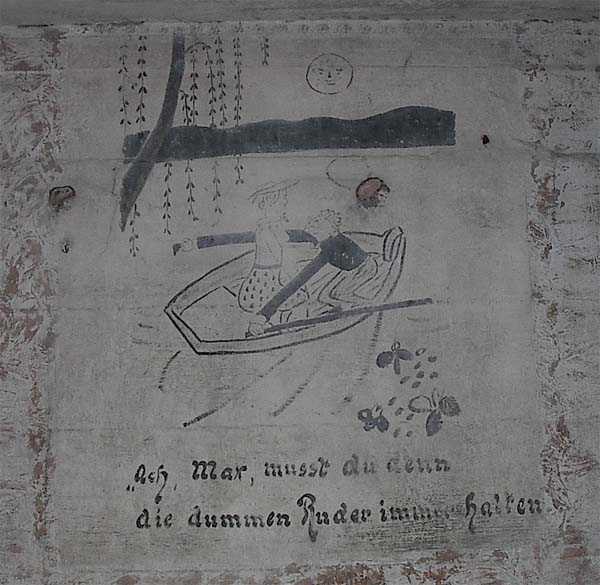 „Ach, Max, musst du denn
die dummen Ruder immer halten